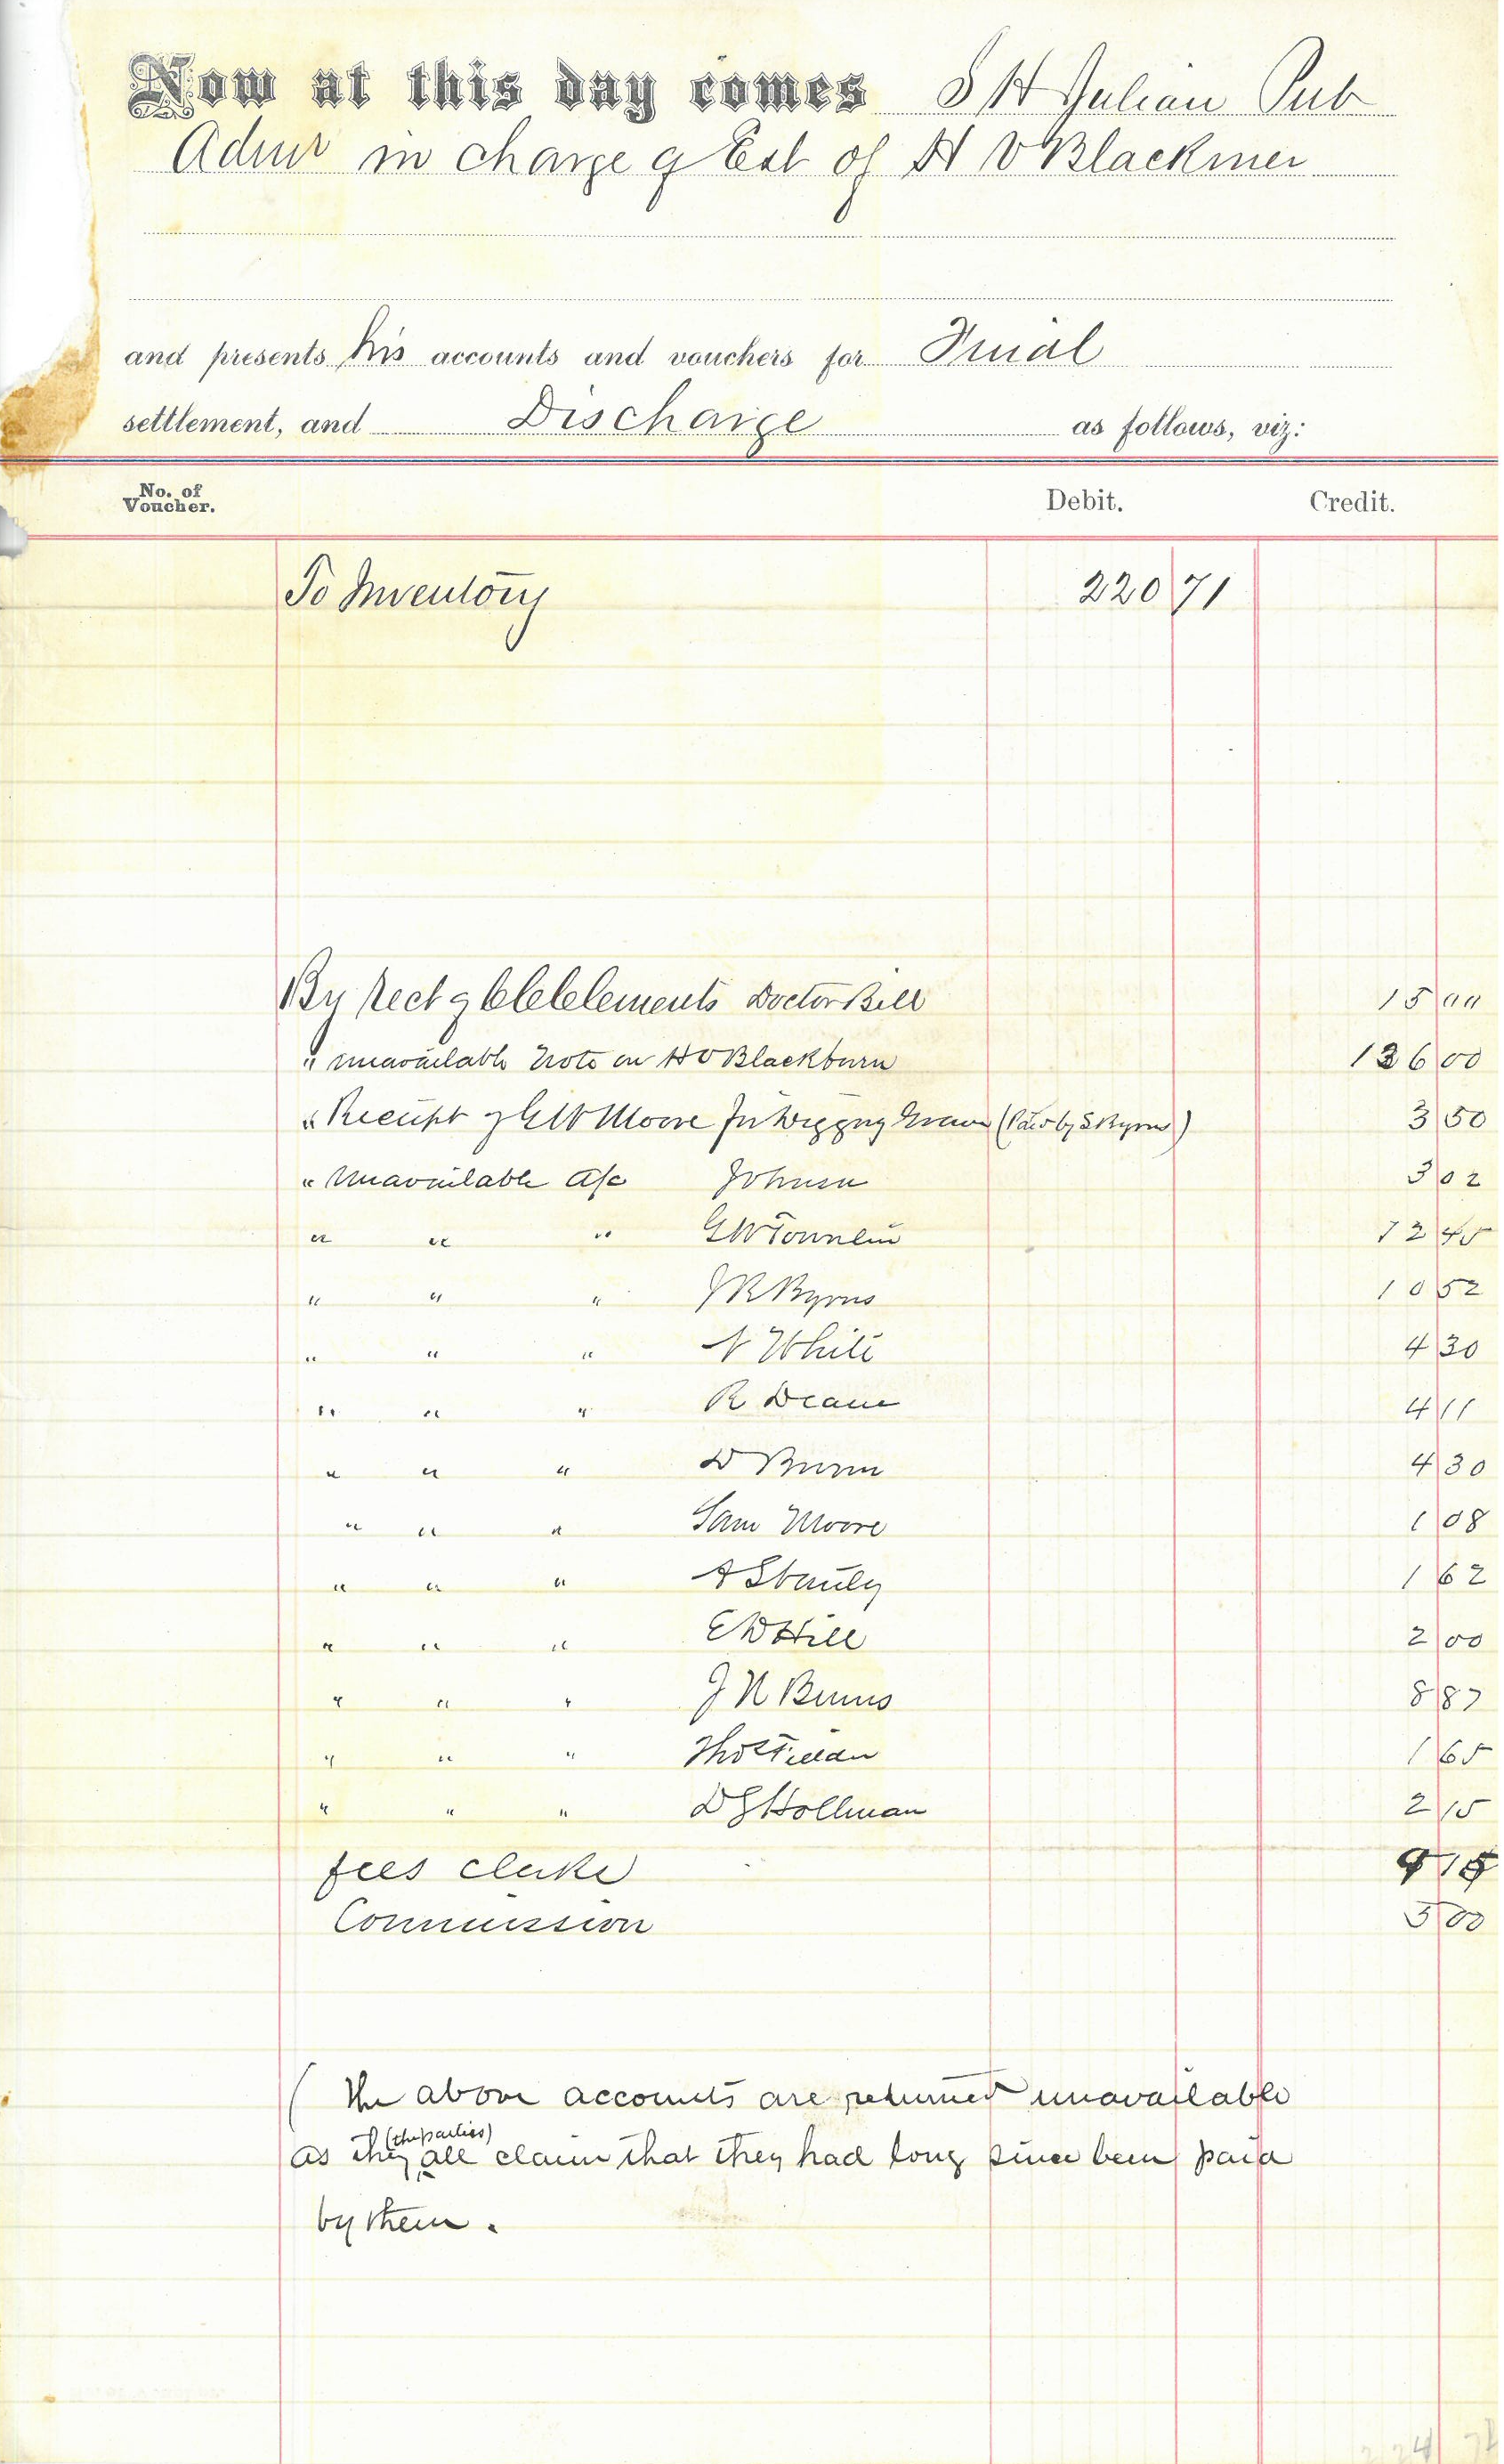 Now at this day comes S H Julian Pub
Admr in charge of Est of H V Blackmer
and presents his accounts and vouchers for Final
settlement, and Discharge as follows, viz:
No. of Voucher. Debit. Credit.
To Inventory 220 71
By Rect of Clements Doctor Bill 15 00
" unavailable Note on H V Blackburn 126 00
" Receipt of G W Moore For Digging Grave (Paid by S Byrns) 3 50
" Unavailable A/c Johnson 3 02
" " " G W Tomlin 12 45
" " " J R Byrns 10 52
" " " N White 4 30
" " " R Deane 4 11
" " " D Burn 4 30
" " " Sam Moore 1 08
" " " A Stanley 1 62
" " " E W Hill 2 00
" " " J N Burns 8 87
" " " Thos 1 65
" " " D G Hollman 2 15
fees clerke 9 15
Commission 5 00
(The above accounts are returned unavailable
as they (the parties) all claim that they had long since been paid
by them.